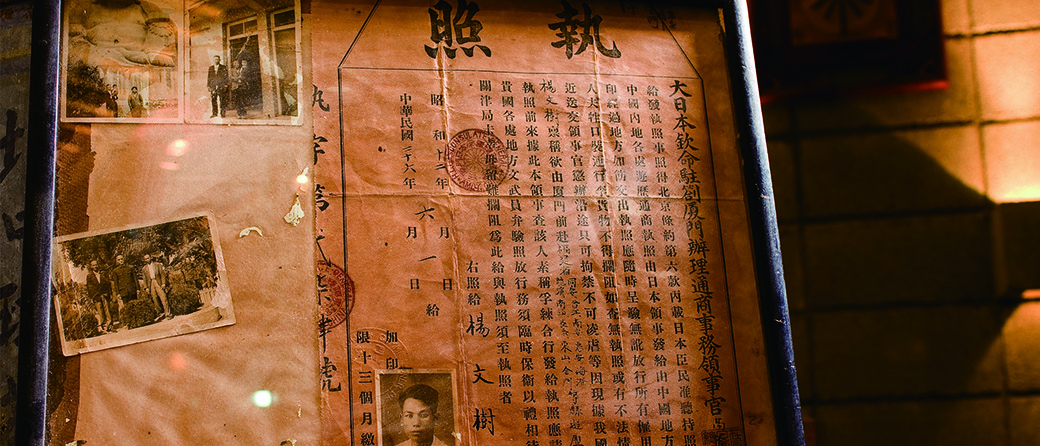 執照
大日本欽命駐劄厦門辦理通商事務領事官高
給發執照事照得北京條約第六款內載日本臣民准聽持照
中國內地各處遊歷通商執照由日本領事發給由中國地方
印經過地方如飭交出執照應隨時呈驗無訛放行所有僱用
人夫牲口裝運行李貨物不得攔阻如查無執照或有不法情
近送交領事官懲辦沿途只可拘禁不可凌虐等因現據我國
楊文樹稟稱欲由厦門前赴福建省
執照前來據此本領事查該人素稱練合行發給執照應
貴國各處地方文武員弁驗照放行務須臨時保衛以禮相待
關津局卡毋稍留難攔阻為此給與執照須至執照者
右照給楊文樹
昭和十二年六月一日給
中華民國二十六年六月一日
加印
限十三個月繳
執字第號